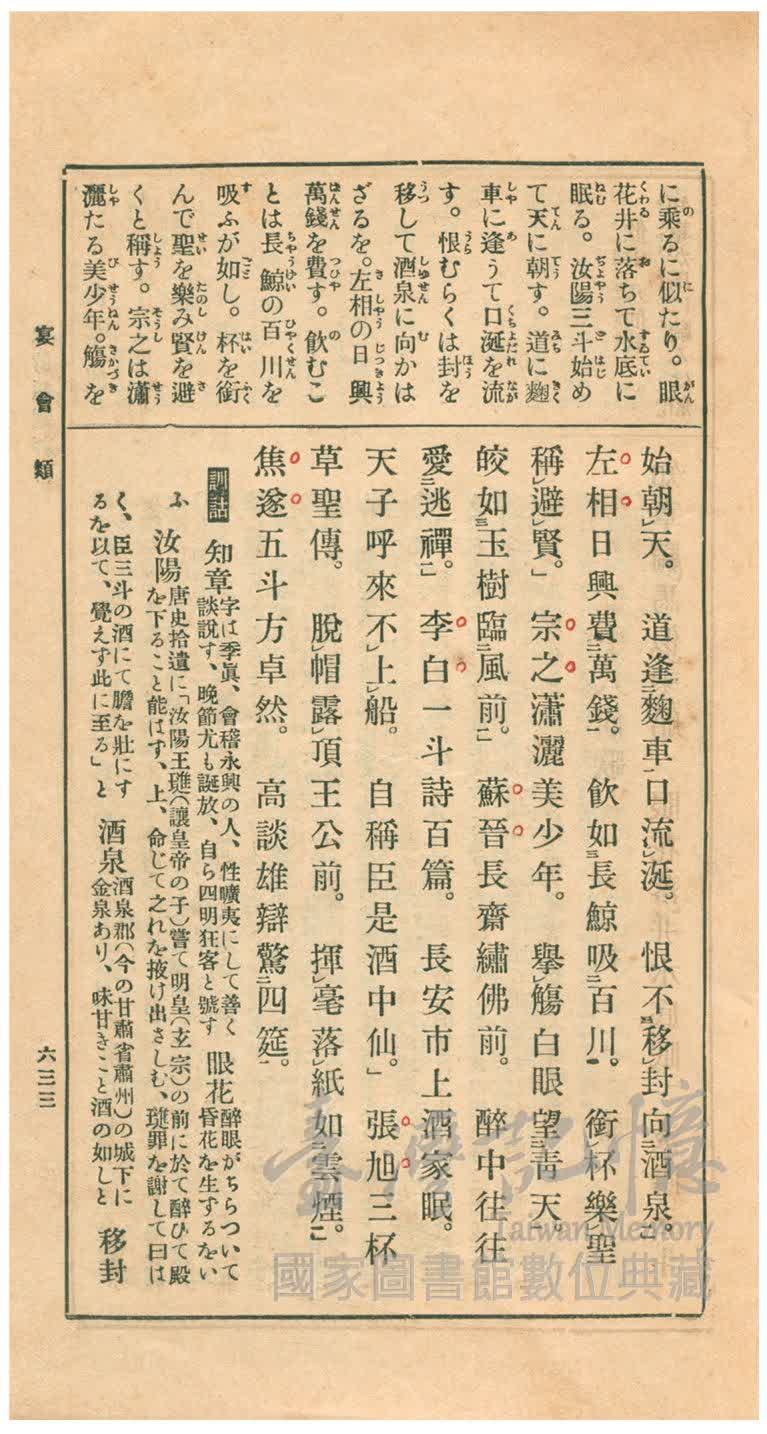 に乘るに似たり。眼
花井に落ちて水底に
眠る。汝陽三斗始め
て天に朝す。道に麴
車に逢うて口涎を流
す。恨むらくは封を
移して酒泉に向かは
ざるを。左相の日興
萬錢を費す。飮むこ
とは長鯨の百川を
吸ふが如し。杯を銜
んで聖を樂み賢を避
くと稱す。宗之は瀟
灑たる美少年。觴を
始朝レ天。道逢二麴車一口流レ涎。恨不レ移三封向二酒泉一。」
左相日興費二萬錢一。飮如三長鯨吸二百川一。銜レ杯樂レ聖
稱レ避レ賢。」宗之瀟灑美少年。擧レ觴白眼望二靑天一。
皎如三玉樹臨二風前一。」蘇晉長齋繡佛前。醉中往往
愛二逃禪一。」李白一斗詩百篇。長安市上酒家眠。
天子呼來不レ上レ船。自稱臣是酒中仙。」張旭三杯
草聖傳。脫レ帽露レ頂王公前。揮レ毫落レ紙如二雲煙一。」
焦遂五斗方卓然。高談雄辯驚二四筵一。
訓詁 知章 字は季眞、會稽永興の人、性曠夷にして善く
談說す、晚節尤も誕放、自ら四明狂客と號す 眼花 醉眼がちらついて
昏花を生ずるをい
ふ 汝陽 唐史拾遺に「汝陽王璡(讓皇帝の子)嘗て明皇(玄宗)の前に於て醉ひて殿
を下ること能はず、上、命じて之れを掖け出さしむ、璡罪を謝して曰は
く、臣三斗の酒にて膽を壯にす
るを以て、覺えず此に至る」と 酒泉 酒泉郡(今の甘肅省肅州)の城下に
金泉あり、味甘きこと酒の如しと 移封
宴會類
六三三
臺灣記憶
Taiwan Memory
國家圖書館數位典藏